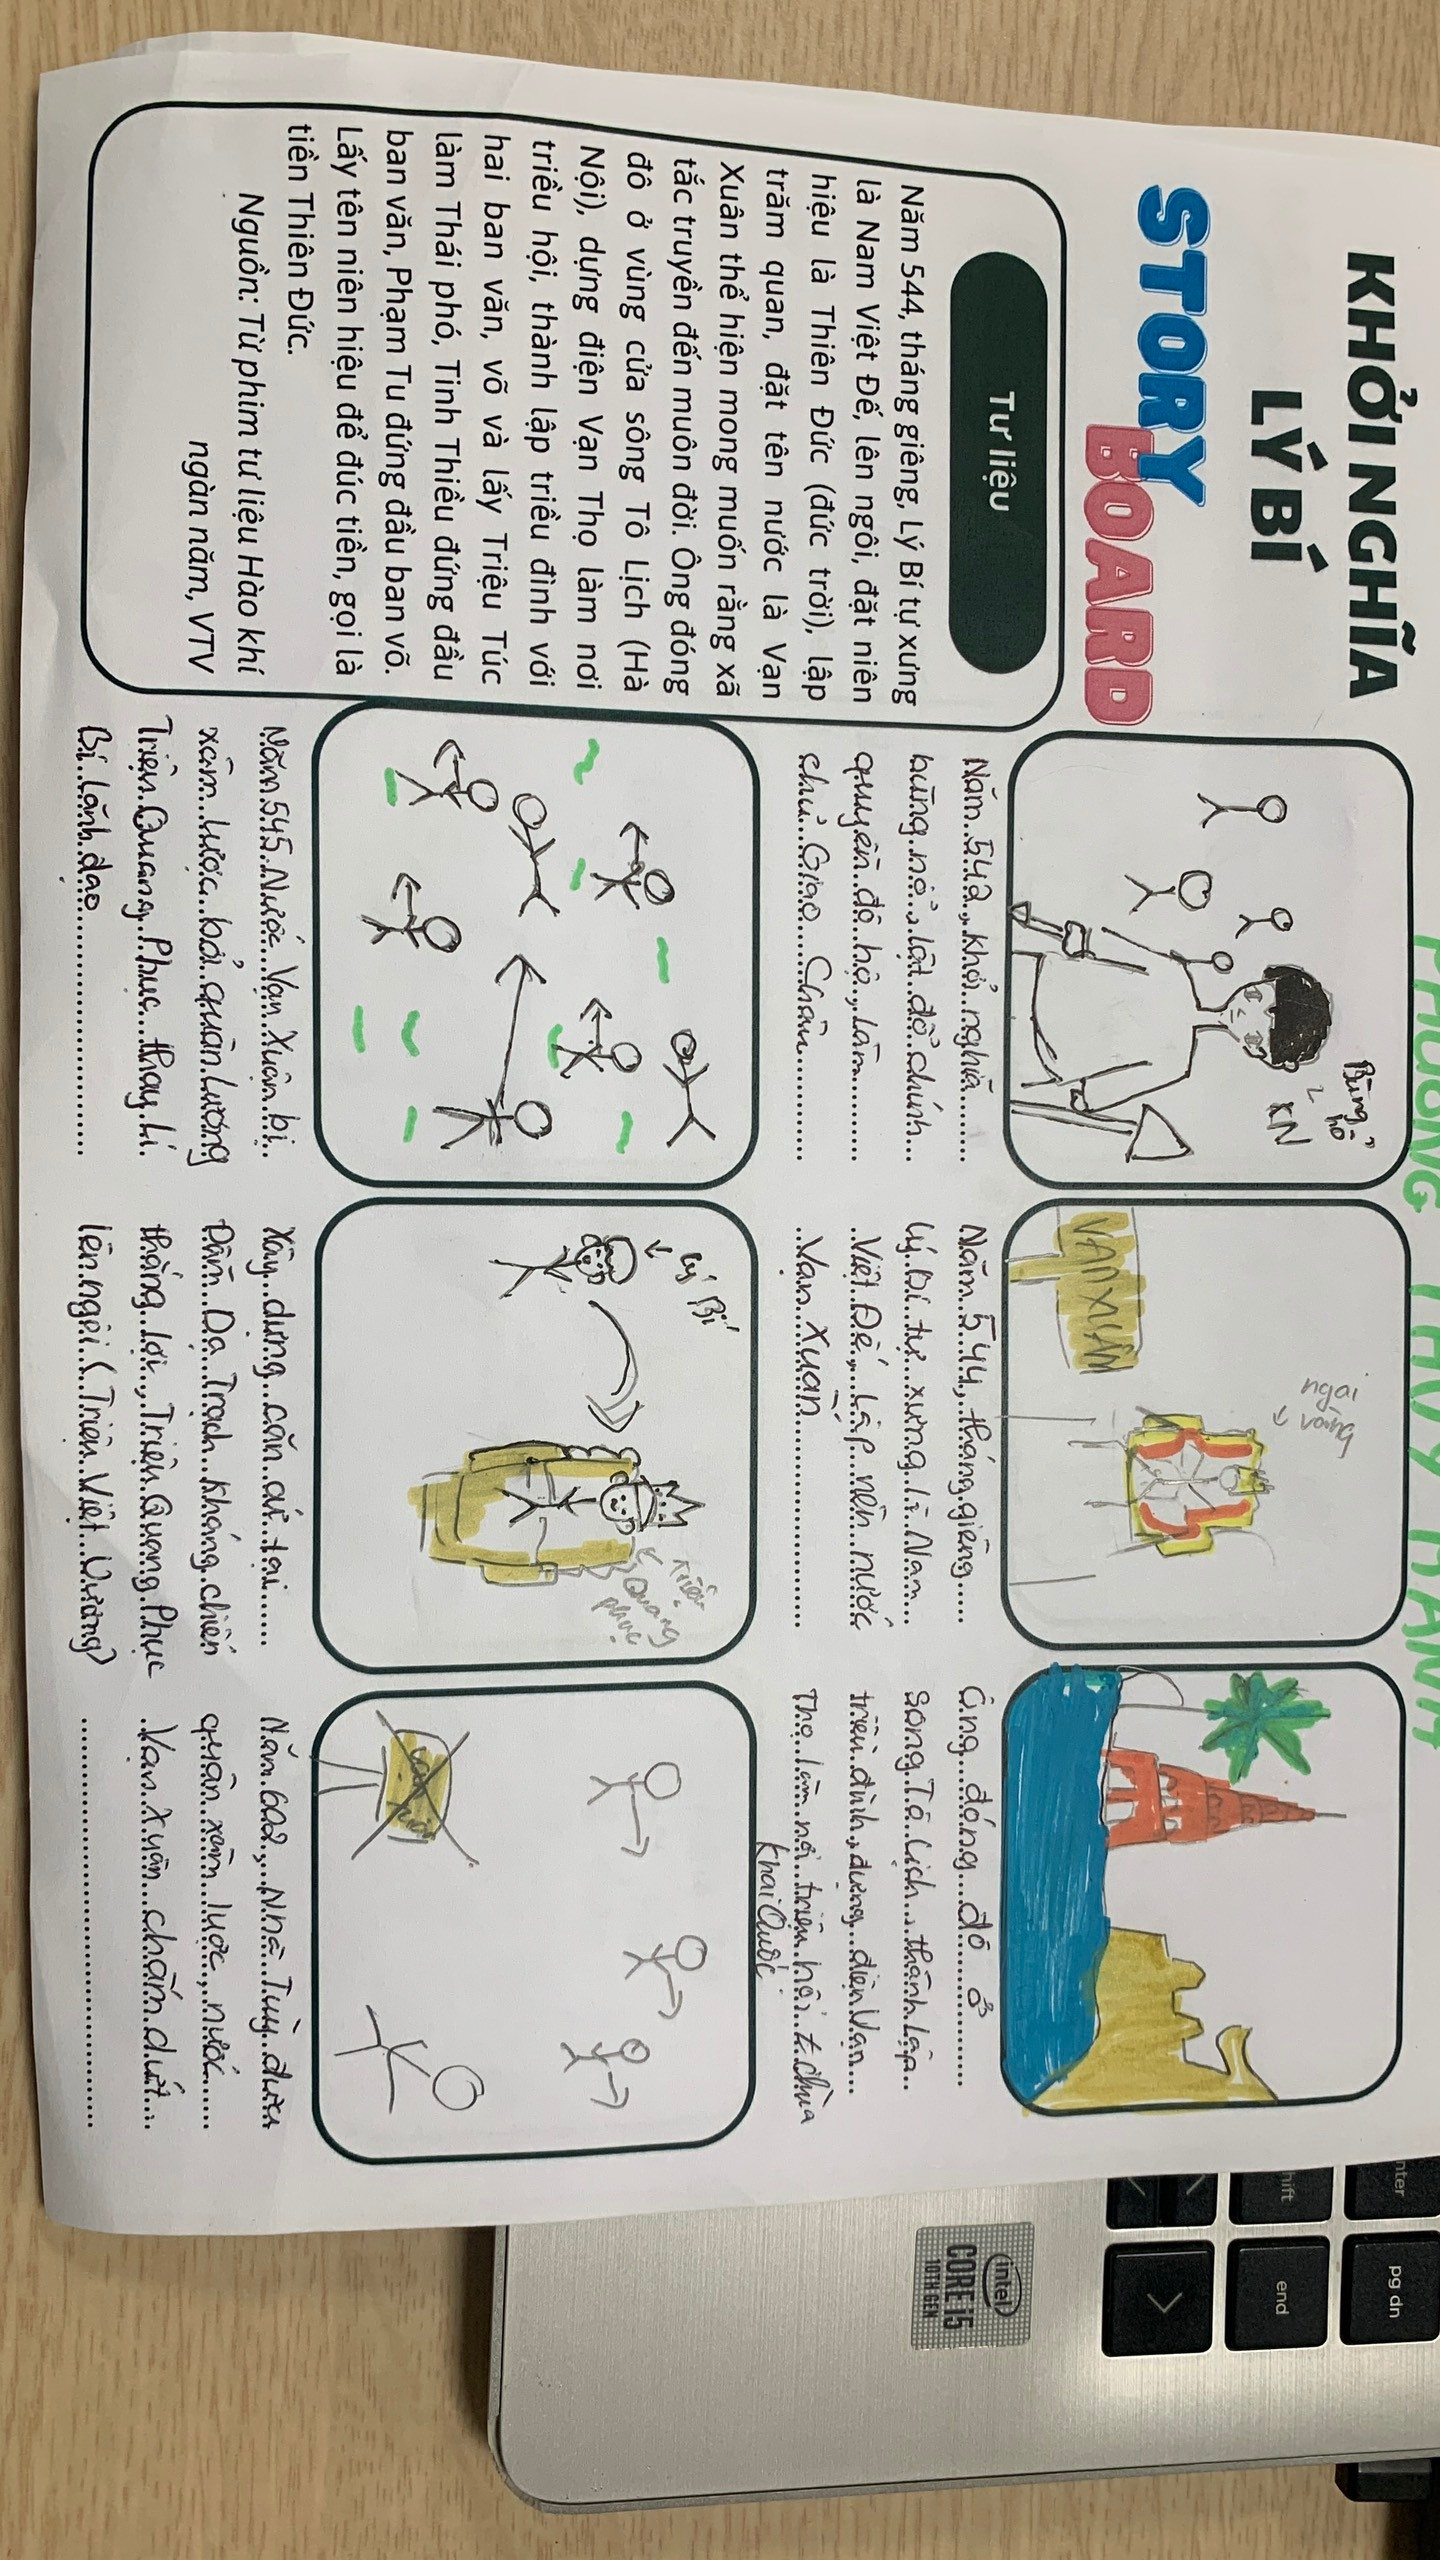 KHỞI NGHĨA
LÝ BÍ
STORY
BOARD
Tư liệu
Năm 544, tháng giêng, Lý Bí tự xưng
là Nam Việt Đế, lên ngôi, đặt niên
hiệu là Thiên Đức (đức trời), lập
trăm quan, đặt tên nước là Vạn
Xuân thể hiện mong muốn rằng xã
tắc truyền đến muôn đời. Ông đóng
đô ở vùng cửa sông Tô Lịch (Hà
Nội), dựng điện Vạn Thọ làm nơi
triều hội, thành lập triều đình với
hai ban văn, võ và lấy Triệu Túc
làm Thái phó, Tinh Thiều đứng đầu
ban văn, Phạm Tu đứng đầu ban võ.
Lấy tên niên hiệu để đúc tiền, gọi là
tiền Thiên Đức.
Nguồn: Từ phim tư liệu Hào khí
ngàn năm, VTV
Bùng nổ
KN
Năm 542, khởi nghĩa
bùng nổ, lật đổ chính
quyền đô hộ, làm
chủ Giao Châu
ngai vàng
VẠN XUÂN
Năm 544, tháng giêng
Lý Bí tự xưng là Nam
Việt Đế, Lập nên nước
Vạn Xuân
Ông đóng đô ở
Sông Tô Lịch, thành lập
triều đình, dựng điện Vạn
Thọ làm nơi triều hội, chùa
khai Quốc
Năm 545 Nước Vạn Xuân bị
xâm lược bởi quân Lương
Triệu Quang Phục thay Lí
Bí lãnh đạo
Lý Bí
Triệu Quang phục
Xây dựng căn cứ tại
Đầm Dạ Trạch kháng chiến
thắng lợi, Triệu Quang Phục
lên ngôi (Triệu Việt Vương)
Năm 602, Nhà Tùy đưa
quân xâm lược, nước
Vạn Xuân chấm dứt
intel
CORE i5
10TH GEN
pg dn
end